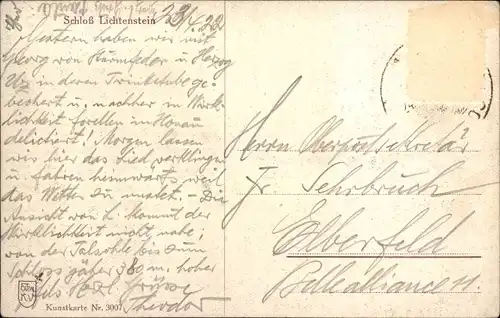 Schloß Lichtenstein 23/4. 22
Gestern haben wir mit
Georg von Sturmfeder u. Herzog
Utz in deren Trinkstube ge-
bechert u. nachher in Wirk-
lichkeit Forellen in Honau
delictiert! Morgen lassen
wir hier das Lied verklingen
u. fahren heimwärts, weil
das Wetter zu
Ansicht von L. kommt der
Wirklichkeit nicht nahe;
von der Talsohle bis zum
Schloss 380 m. hoher
Fels. Herzl. Grüsse
Theodor
Kunstkarte Nr. 3007
Herrn Oberpostsekretär
Fr. Sehrbruch
Elberfeld
Bellealliance